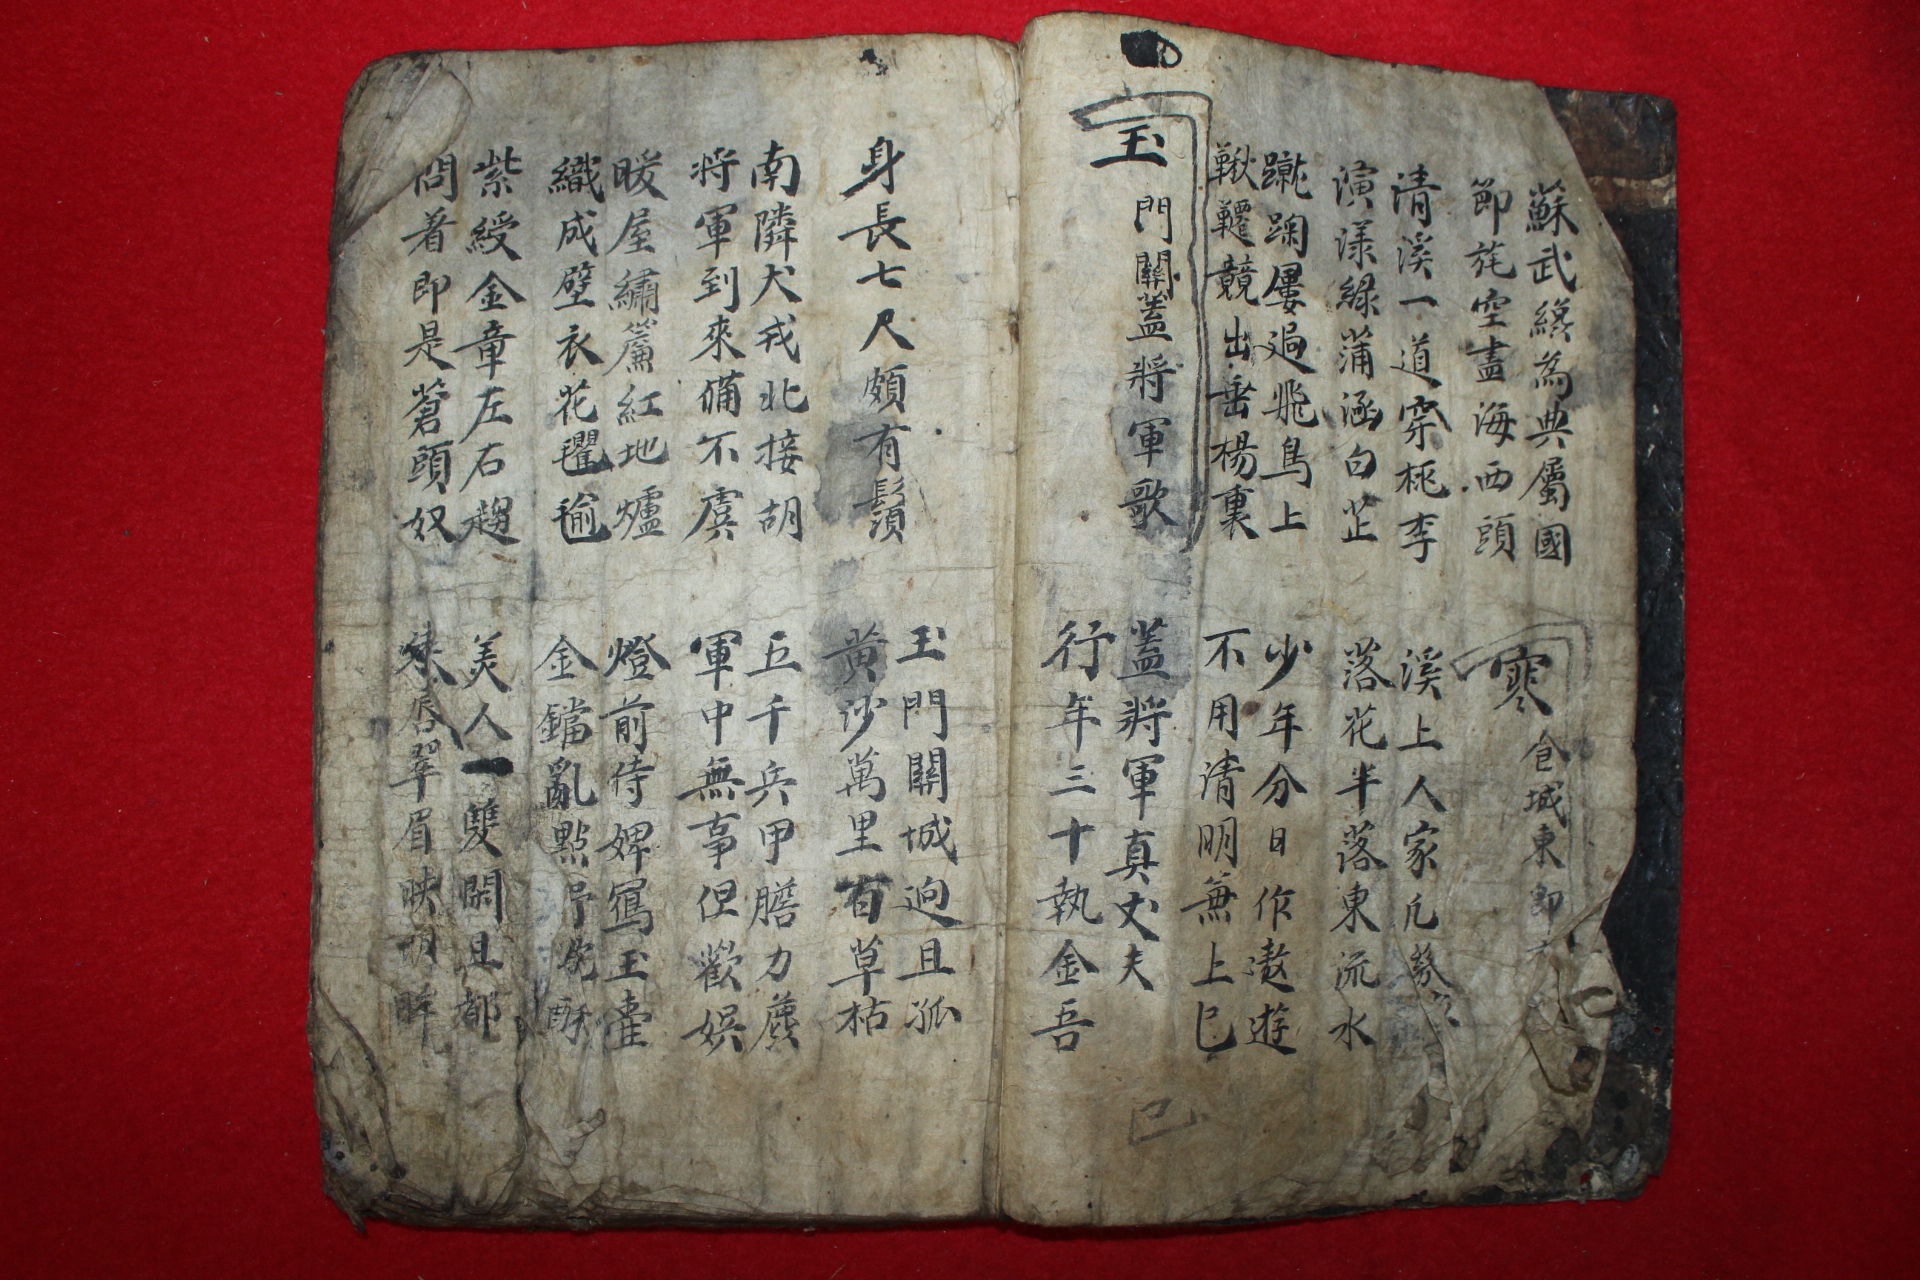 蘇武終為典屬國
節旄空盡海西頭
寒食城東即
清溪一道穿桃李
演漾綠蒲涵白芷
溪上人家凡幾
落花半落東流水
蹴踘屢過飛鳥上
鞦韆競出垂楊裏
少年分日作遨遊
不用清明兼上巳
玉門關蓋將軍歌
蓋將軍真丈夫
行年三十執金吾
巳
身長七尺頗有鬚
玉門關城迥且孤
黃沙萬里百草枯
南隣犬戎北接胡
將軍到來備不虞
五千兵甲膽力麤
軍中無事但歡娛
暖屋繡簾紅地爐
織成壁衣花氍毹
燈前侍婢瀉玉壺
金鐺亂點野駝酥
紫綬金章左石趨
問着即是蒼頭奴
美人一雙閑且都
朱唇翠眉映明眸